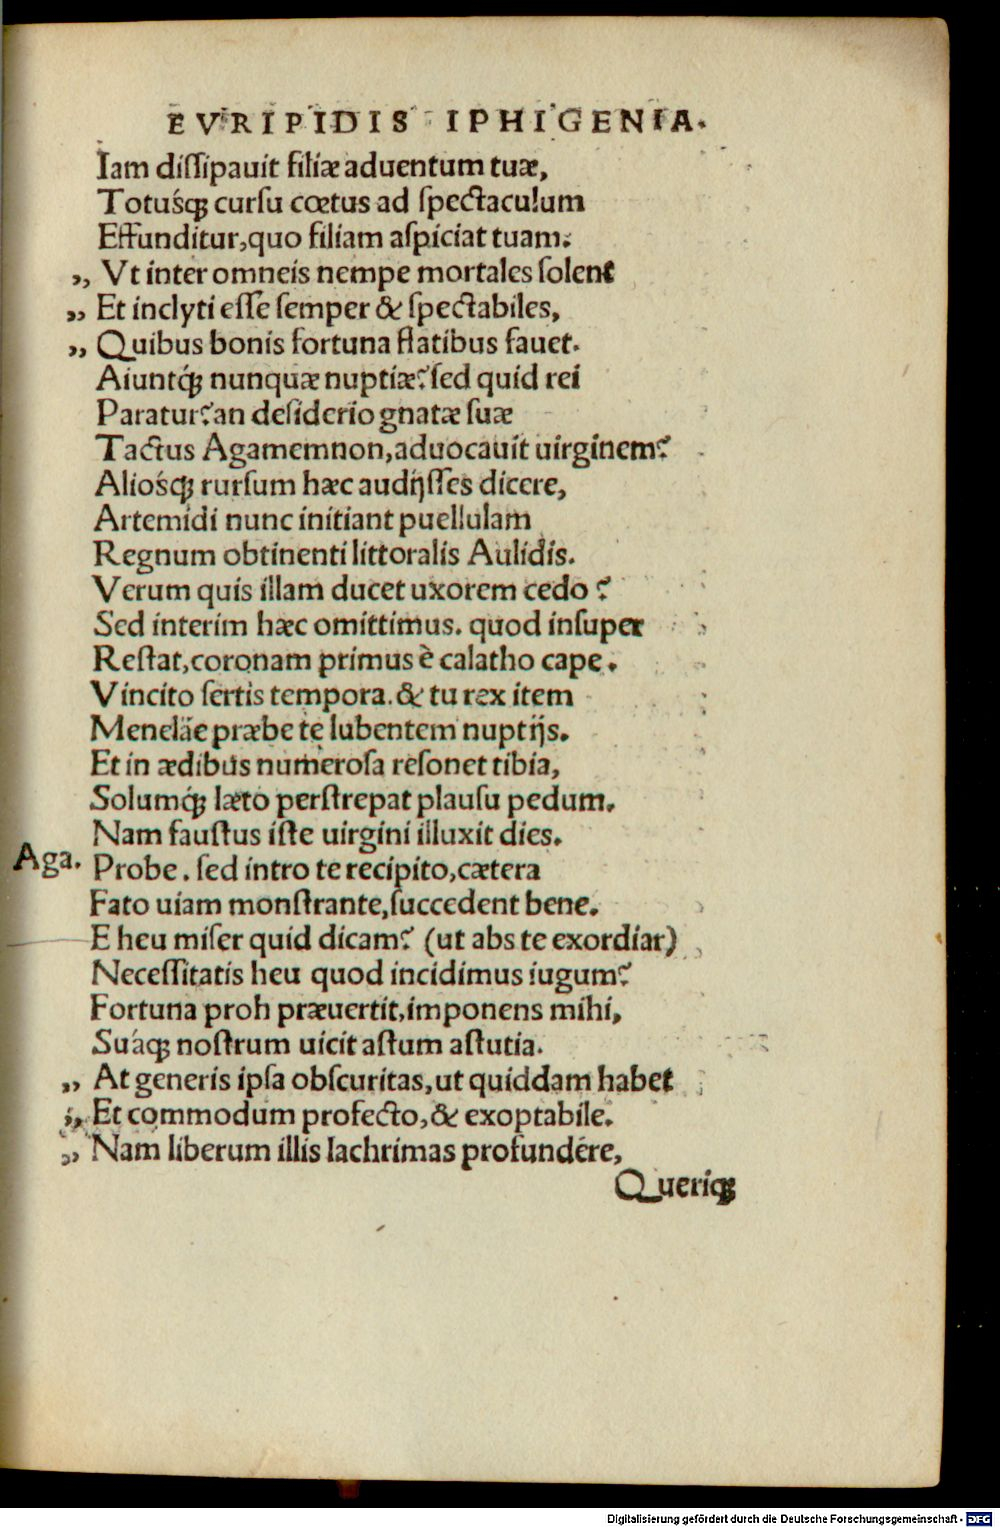 EVRIPIDIS IPHIGENIA.
Iam diſſipauit filiæ aduentum tuæ,
Totuśq; curſu cœtus ad ſpectaculum
Effunditur,quo filiam aſpiciat tuam.
,, Vt inter omneis nempe mortales ſolent
,, Et inclyti eſſe ſemper & ſpectabiles,
,, Quibus bonis fortuna flatibus fauet.
Aiuntq́; nunquæ nuptiæ? ſed quid rei
Paratur? an deſiderio gnatæ ſuæ
Tactus Agamemnon,aduocauit uirginem?
Aliośq; rurſum hæc audijſſes dicere,
Artemidi nunc initiant puellulam
Regnum obtinenti littoralis Aulidis.
Verum quis illam ducet uxorem cedo ?
Sed interim hæc omittimus. quod inſuper
Reſtat,coronam primus è calatho cape.
Vincito ſertis tempora. & tu rex item
Meneläe præbe te lubentem nuptijs.
Et in ædibus numeroſa reſonet tibia,
Solumq́; læto perſtrepat plauſu pedum.
Nam fauſtus iſte uirgini illuxit dies.
Aga. Probe. ſed intro te recipito,cætera
Fato uiam monſtrante,ſuccedent bene.
E heu miſer quid dicam? (ut abs te exordiar)
Neceſſitatis heu quod incidimus iugum?
Fortuna proh præuertit,imponens mihi,
Suáq; noſtrum uicit aſtum aſtutia.
,, At generis ipſa obſcuritas,ut quiddam habet
,, Et commodum profecto,& exoptabile.
,, Nam liberum illis lachrimas profundere,
Queriq;
Digitalisierung gefördert durch die Deutsche Forschungsgemeinschaft - DFG